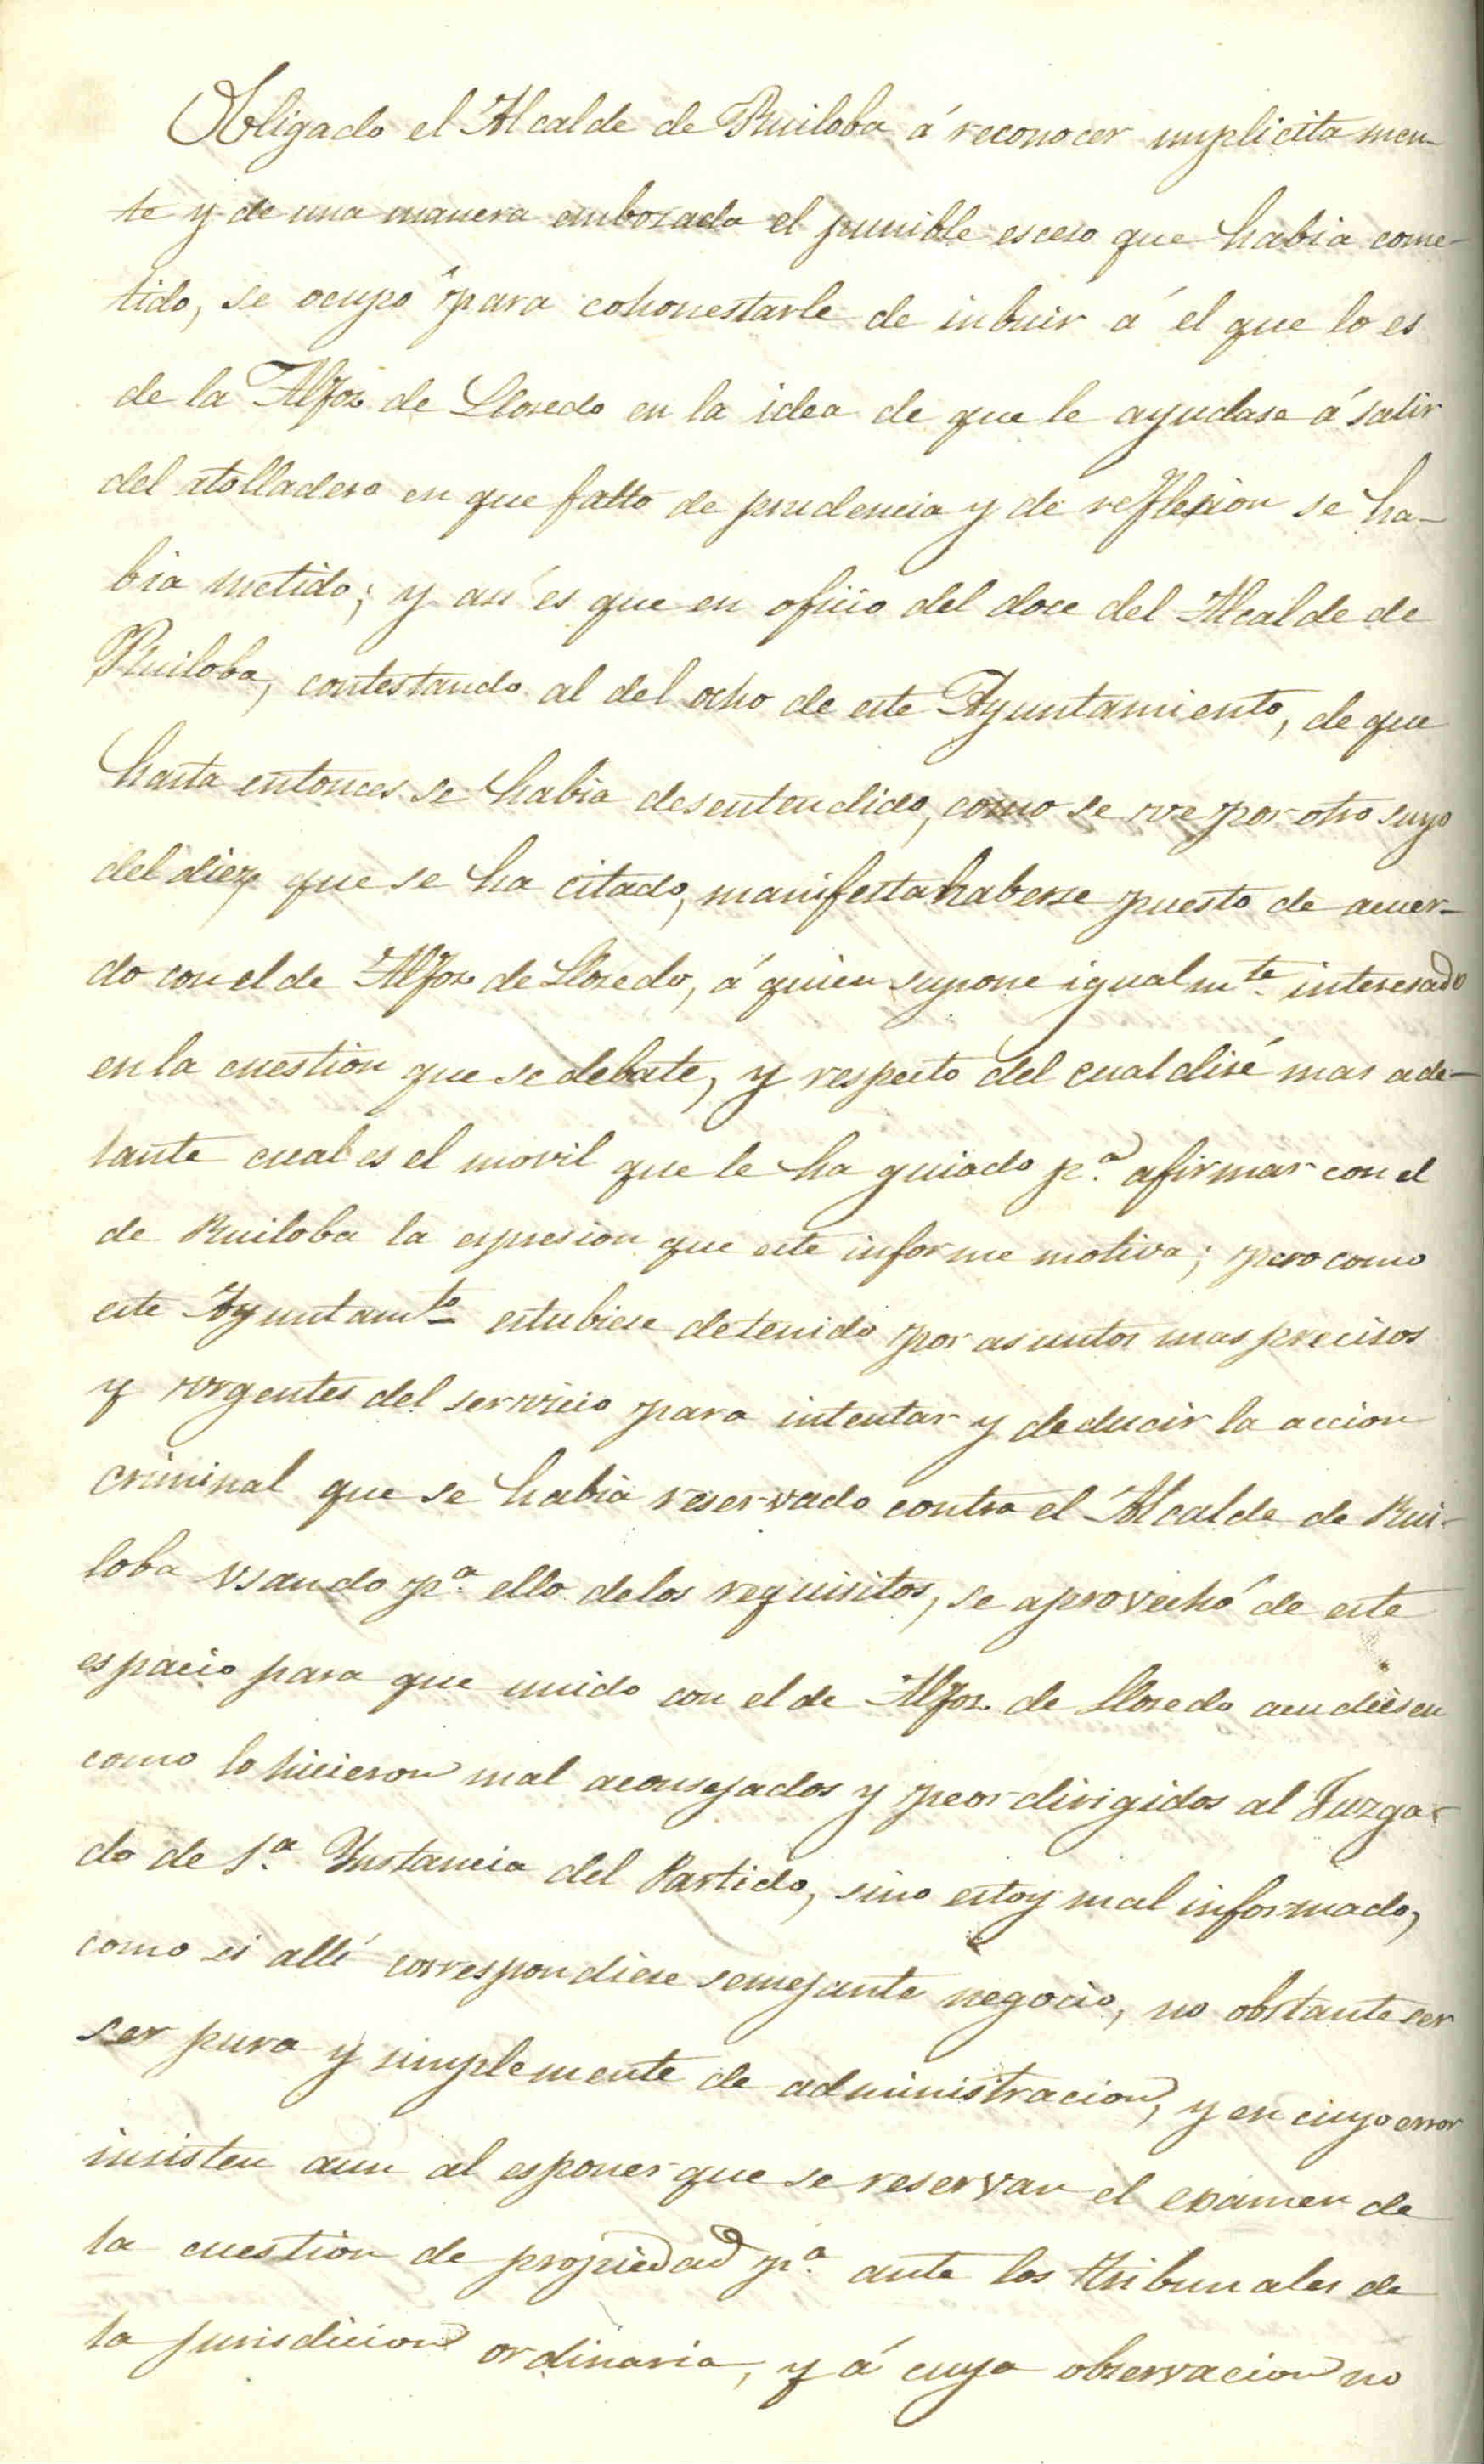 Obligado el Alcalde de Ruiloba á reconocer implicitamen-
te y de una manera embozada el punible esceso que habia come-
tido, se ocupó para cohonestarle de inbuir á el que lo es
de la Alfoz de Lloredo en la idea de que le ayudase á salir
del atolladero en que falto de prudencia y de reflexion se ha-
bia metido; y asi es que en oficio del doce del Alcalde de
Ruiloba, contestando al del ocho de este Ayuntamiento, de que
hasta entonces se habia desentendido, como se ve por otro suyo
del diez que se ha citado, manifesta haberse puesto de acuer-
do con el de Alfoz de Lloredo, á quien supone igualmte interesado
en la cuestion que se debate, y respecto del cual diré mas ade-
lante cual es el movil que le ha guiado pa. afirmar con el
de Ruiloba la espresion que este informe motiva; pero como
este Ayuntamto estubiese detenido por asuntos mas precisos
y urgentes del servicio para intentar y deducir la accion
criminal que se habia reservado contra el Alcalde de Rui-
loba usando pa. ello de los requisitos, se aprovechó de este
espacio para que unido con el de Alfoz de Lloredo acudiesen
como lo hicieron mal aconsejados y peor dirigidos al Juzga-
do de 1a. Ynstancia del Partido, sino estoy mal informado,
como si allí correspondiese semejante negocio, no obstante ser
ser pura y simplemente de administracion, y en cuyo error
insisten aun al esponer que se reservan el exámen de
la cuestion de propiedad pa. ante los tribunales de
la jurisdicion ordinaria, y á cuya observacion no